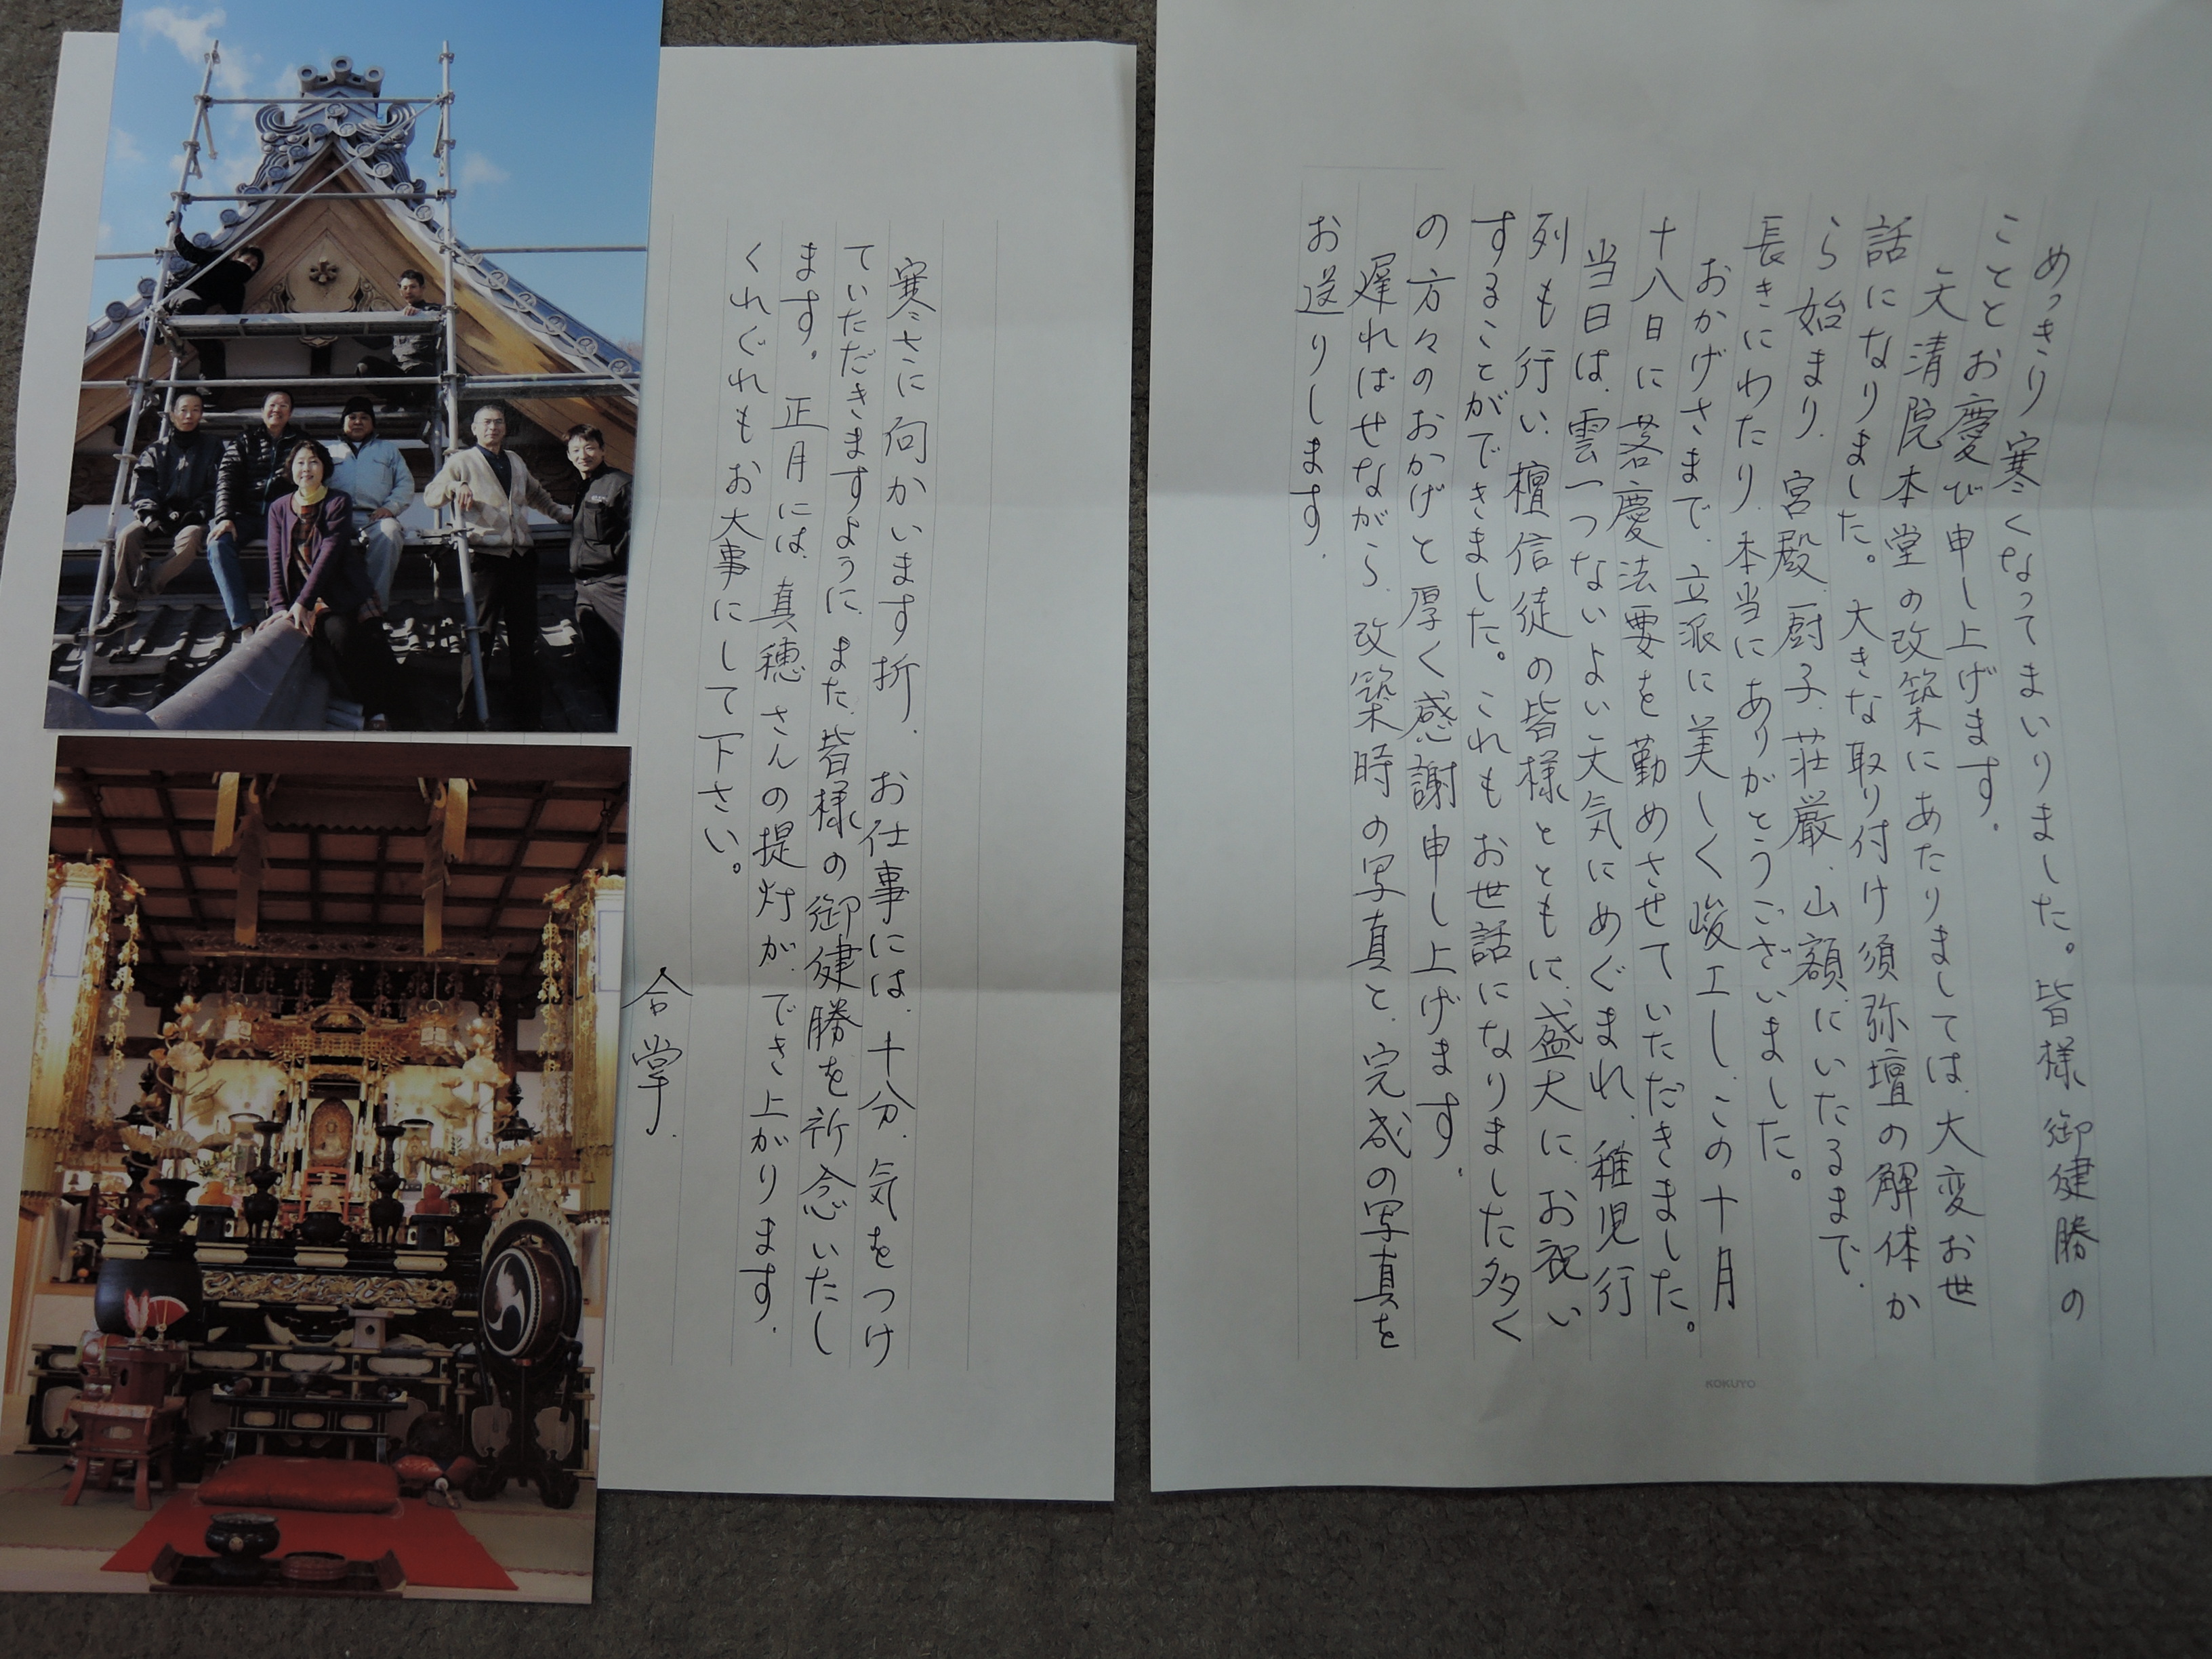 めっきり寒くなってまいりました。皆様御健勝の
こととお慶び申し上げます。
天清院本堂の改築にあたりましては、大変お世
話になりました。大きな取り付け須弥壇の解体か
ら始まり、宮殿、厨子、荘厳、山額にいたるまで、
長きにわたり、本当にありがとうございました。
おかげさまで、立派に美しく峻工し、この十月
十八日に落慶法要を勤めさせていただきました。
当日は、雲一つないよい天気にめぐまれ、稚児行
列も行い、檀信徒の皆様とともに、盛大に、お祝い
することができました。これもお世話になりました多く
の方々のおかげと厚く感謝申し上げます。
遅ればせながら、改築時の写真と、完成の写真を
お送りします。
KOKUYO
寒さに向かいます折、お仕事には、十分、気をつけ
ていただきますように、また、皆様の御健勝を祈念いたし
ます。正月には、真穂さんの提灯が、でき上がります。
くれぐれもお大事にして下さい。
合掌.